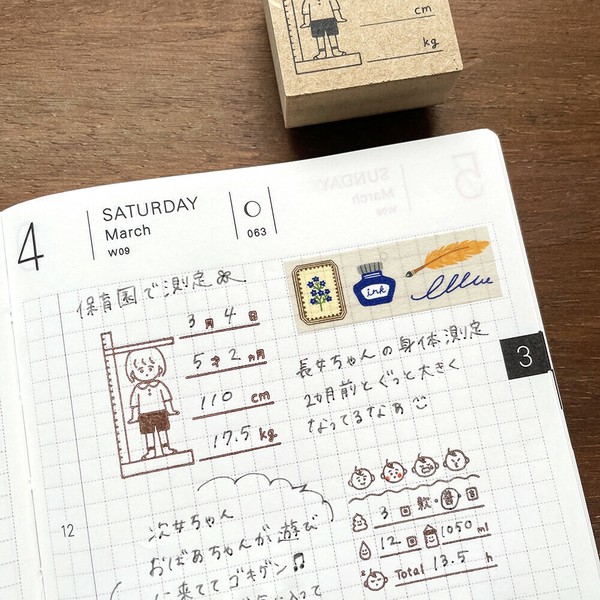 cm
kg
4
SATURDAY
March
W09
063
SUNDAY
March
W09
5
保育園で測定
3月4日
5才2ヵ月
110 cm
17.5 kg
ink
長女ちゃんの身体測定
2カ月前とぐっと大きく
なってるなぁ
3
12
次女ちゃん
おばあちゃんが遊び
に来ててゴキゲン♫
3回 軟・普・固
12回 1050 ml
Total 13.5 h